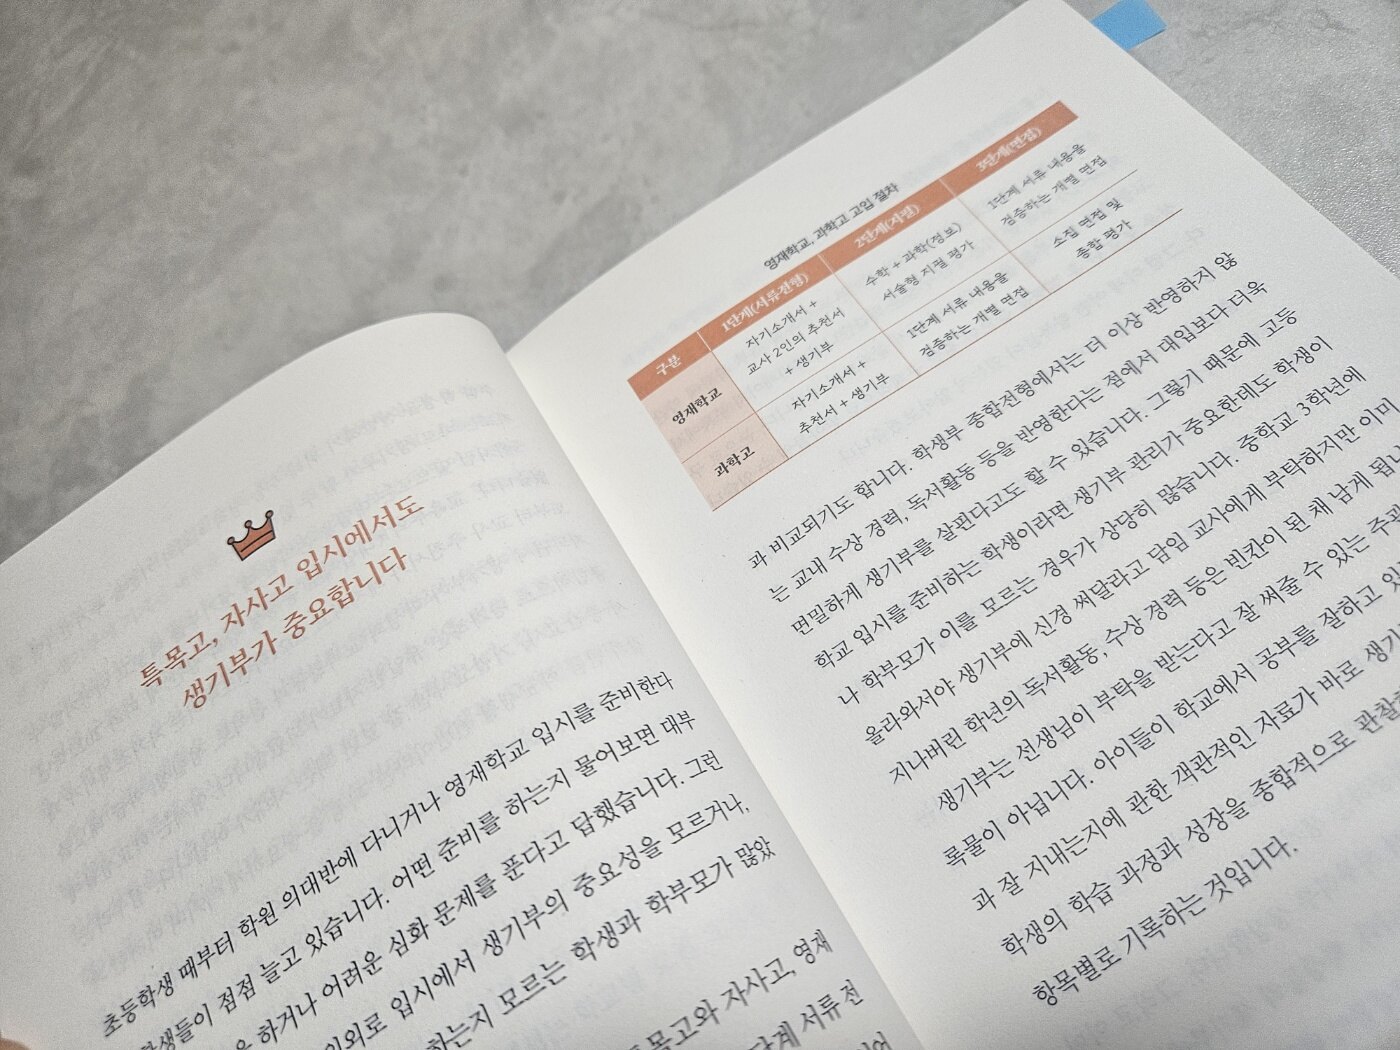 특목고, 자사고 입시에서도
생기부가 중요합니다
초등학생 때부터 학원 의대반에 다니거나 영재학교 입시를 준비한다
학생들이 점점 늘고 있습니다. 어떤 준비를 하는지 물어보면 대부
하거나 어려운 심화 문제를 푼다고 답했습니다. 그런
의외로 입시에서 생기부의 중요성을 모르거나,
하는지 모르는 학생과 학부모가 많았
목고와 자사고, 영재
단계 서류 전
영재학교, 과학고 고입 절차
구분 1단계(서류전형) 2단계(지필) 3단계(면접)
영재학교
자기소개서 +
교사 2인의 추천서
+ 생기부
수학 + 과학(정보)
서술형 지필 평가
1단계 서류 내용을
검증하는 개별 면접
과학고
자기소개서 +
추천서 + 생기부
1단계 서류 내용을
검증하는 개별 면접
소집 면접 및
종합 평가
과 비교되기도 합니다. 학생부 종합전형에서는 더 이상 반영하지 않
는 교내 수상 경력, 독서활동 등을 반영한다는 점에서 대입보다 더욱
면밀하게 생기부를 살핀다고도 할 수 있습니다. 그렇기 때문에 고등
학교 입시를 준비하는 학생이라면 생기부 관리가 중요한데도 학생이
나 학부모가 이를 모르는 경우가 상당히 많습니다. 중학교 3학년에
올라와서야 생기부에 신경 써달라고 담임 교사에게 부탁하지만 이미
지나버린 학년의 독서활동, 수상 경력 등은 빈칸이 된 채 남게 됩니
생기부는 선생님이 부탁을 받는다고 잘 써줄 수 있는 주관
록물이 아닙니다. 아이들이 학교에서 공부를 잘하고 있
과 잘 지내는지에 관한 객관적인 자료가 바로 생기
학생의 학습 과정과 성장을 종합적으로 관찰
항목별로 기록하는 것입니다.